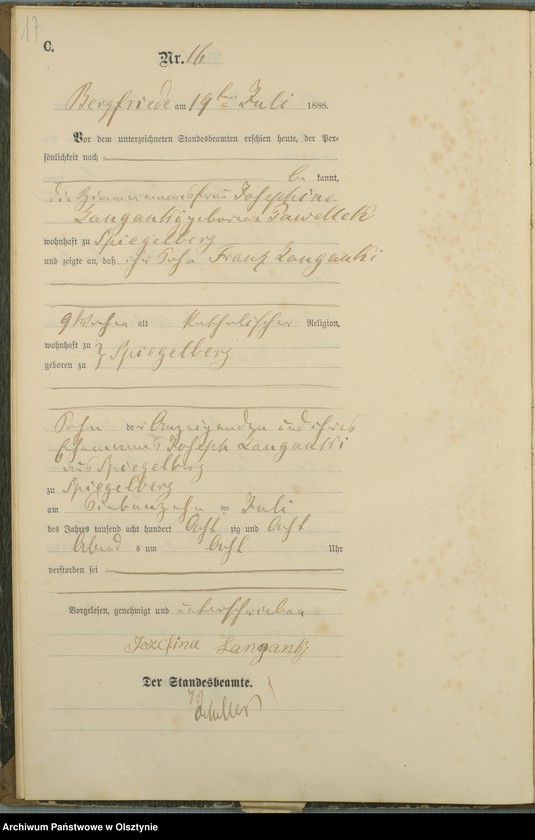 17
C.
Nr. 16
Bergfriede am 19ten Juli 1888.
Vor dem unterzeichneten Standesbeamten erschien heute, der Per-
sönlichkeit nach
be kannt,
die Zimmermannsfrau Josephine
Langanki geborene Pawellek
wohnhaft zu Spiegelberg
und zeigte an, daß ihr Sohn Franz Langanki
9 Wochen alt katholischer Religion,
wohnhaft zu
geboren zu } Spiegelberg
Sohn der Anzeigenden und ihres
Ehemannes Joseph Langanki
aus Spiegelberg
zu Spiegelberg
am Siebenzehn ten Juli
des Jahres tausend acht hundert Acht zig und Acht
Abend s um Acht Uhr
verstorben sei
Vorgelesen, genehmigt und unterschrieben
Jozefina
Der Standesbeamte.
Archiwum Państwowe w Olsztynie